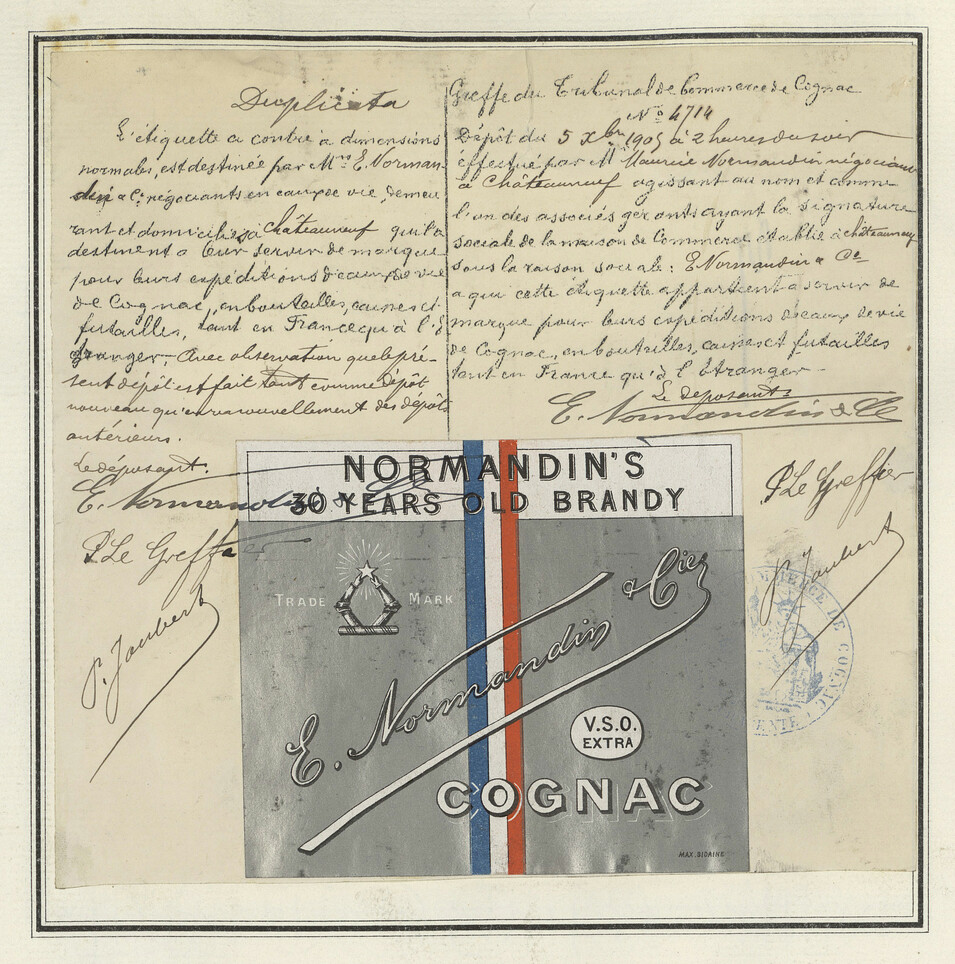 Duplicata
L'étiquette ci contre à dimensions
normales, est destinée par Mrs E. Norman-
din & Cie négociants en eaux de vie, demeu
rant et domiciliés à Châteauneuf qui la
destinent à leur servir de marque
pour leurs expéditions d'eaux de vie
de Cognac, en bouteilles, caisses et
futailles, tant en France qu'à l'é
tranger - Avec observation que le pré-
sent dépôt est fait tant comme dépôt
nouveau qu'en renouvellement des dépôts
antérieurs.
Le déposant.
E. Normandin & Cie
P. Le Greffier
P. Joubert
Greffe du Tribunal de Commerce de Cognac
No 4714
Dépôt du 5 Xbre 1905 à 2 heures du soir
effectué par Mr Maurice Normandin négociant
à Châteauneuf agissant au nom et comme
l'un des associés gérants ayant la signature
sociale de la maison de Commerce établie à Châteauneuf
sous la raison sociale : E. Normandin & Cie
a qui cette étiquette appartient a servir de
marque pour leurs expéditions d'eaux de vie
de Cognac, en bouteilles, caisses et futailles
tant en France qu'à l'Etranger -
Le déposant.
E. Normandin & Cie
P. Le Greffier
P. Joubert
COMMERCE DE COGNAC
NORMANDIN'S
30 YEARS OLD BRANDY
TRADE MARK
E. Normandin & Cie
V.S.O.
EXTRA
COGNAC
MAX. SIDAINE